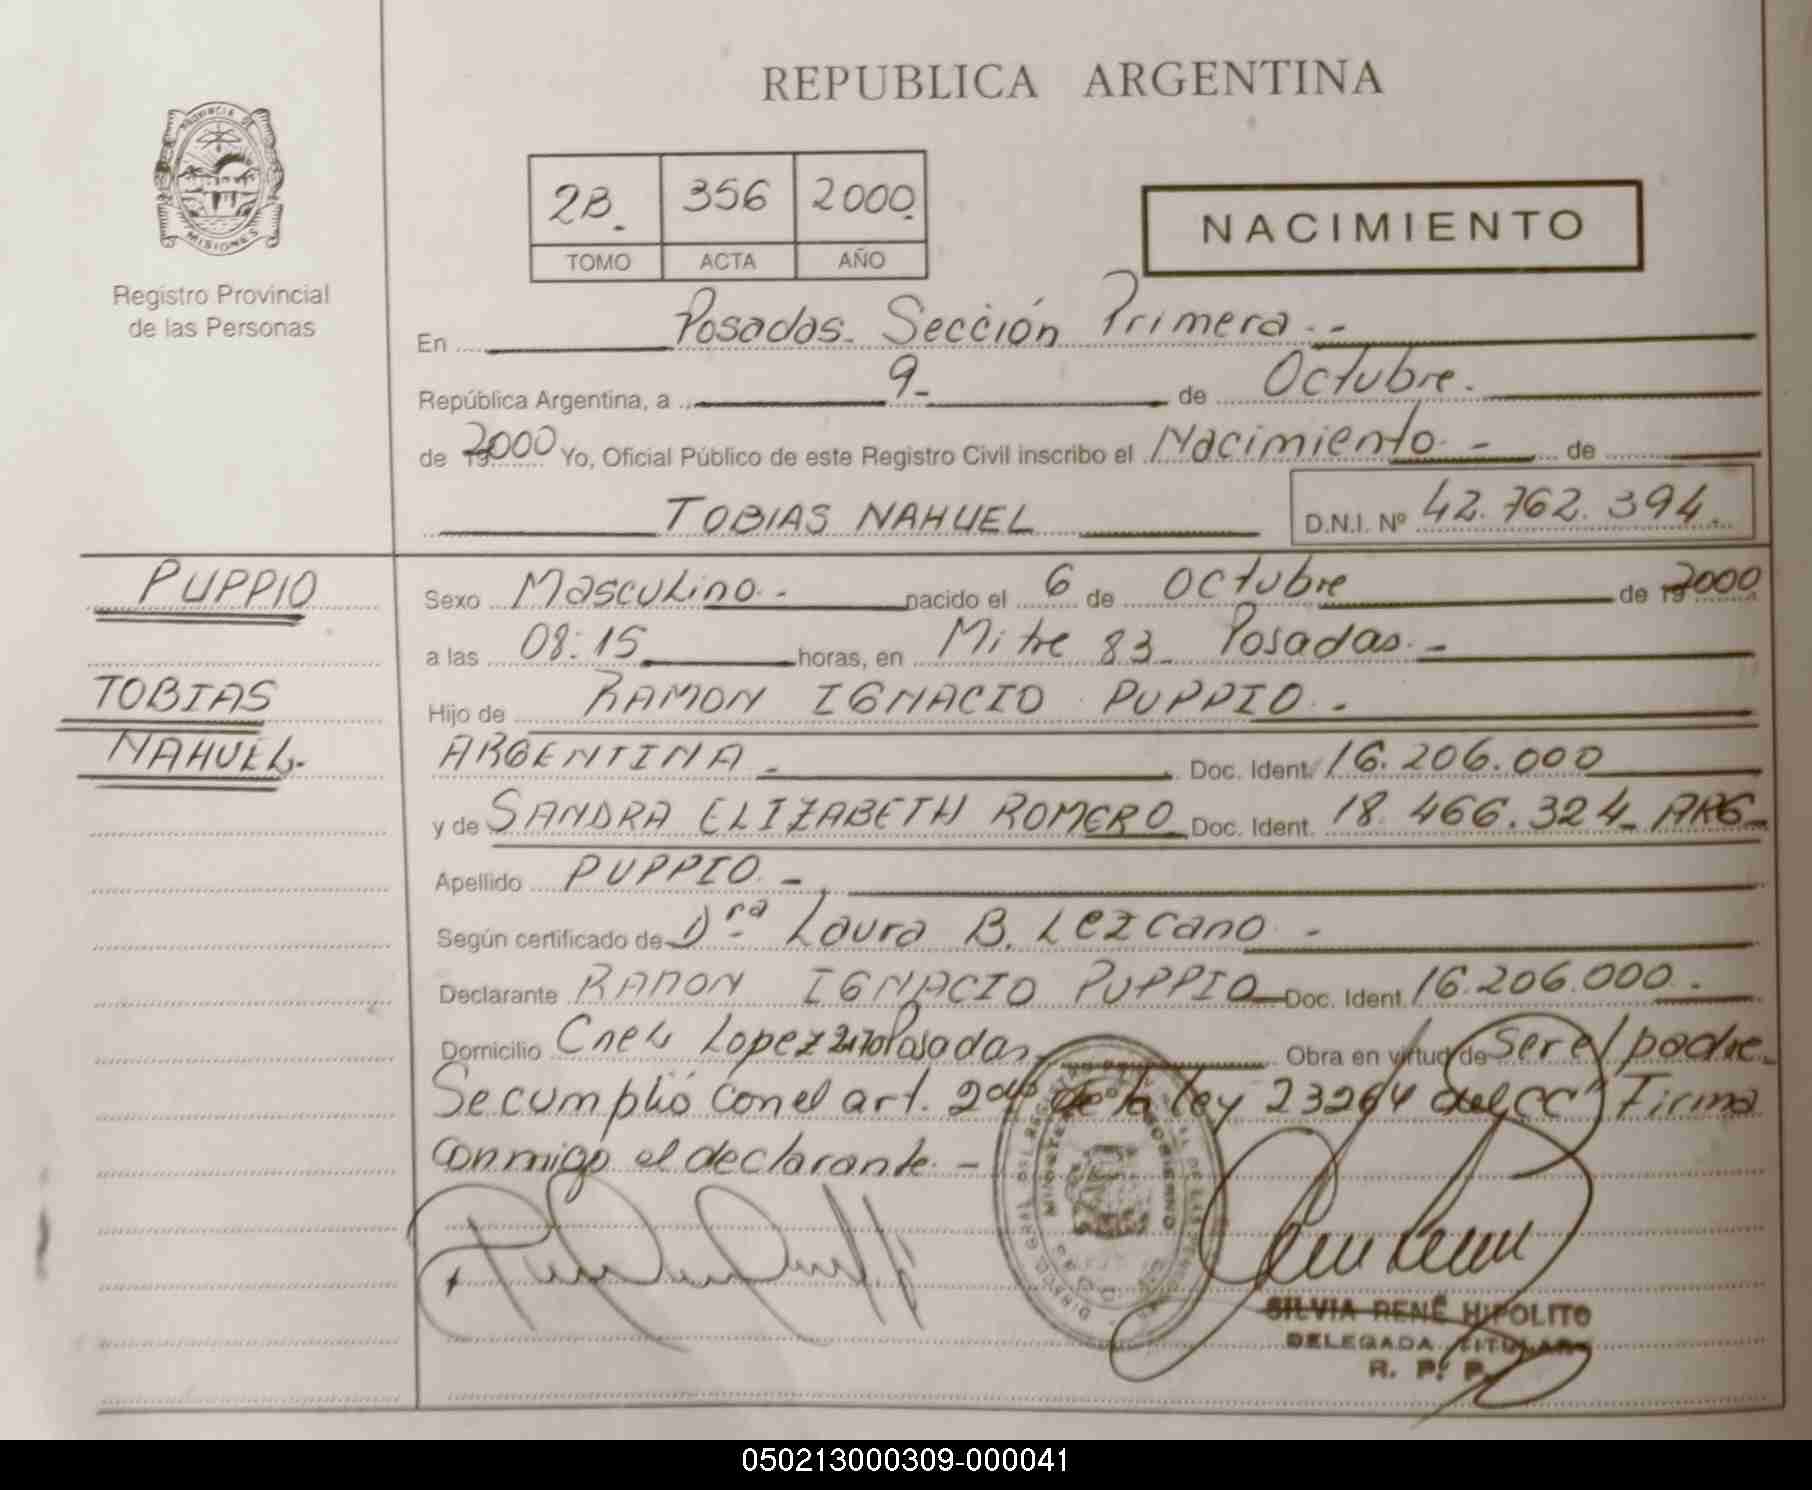 REPUBLICA ARGENTINA
PROVINCIA DE
MISIONES
Registro Provincial
de las Personas
2B. 356 2000.
TOMO ACTA AÑO
NACIMIENTO
En Posadas. Sección Primera.-
República Argentina, a 9- de Octubre.
de 2000 Yo, Oficial Público de este Registro Civil inscribo el Nacimiento - de
TOBIAS NAHUEL D.N.I. Nº 42.762.394.
PUPPIO
TOBIAS
NAHUEL.-
Sexo Masculino.- nacido el 6 de Octubre de 2000
a las 08:15 horas, en Mitre 83- Posadas.-
Hijo de RAMON IGNACIO PUPPIO.-
ARGENTINA.- Doc. Ident. 16.206.000
y de SANDRA ELIZABETH ROMERO Doc. Ident. 18.466.324- ARG-
Apellido PUPPIO.-
Según certificado de Dra Laura B. Lezcano.-
Declarante RAMON IGNACIO PUPPIO Doc. Ident. 16.206.000.-
Domicilio Cnel Lopez Posadas- Obra en virtud de Ser el padre-
Se cumplió con el art. 2do de la Ley 23264 del CC Firma
conmigo el declarante.-
SILVIA RENÉ HIPOLITO
DELEGADA TITULAR
R. P. P.
050213000309-000041